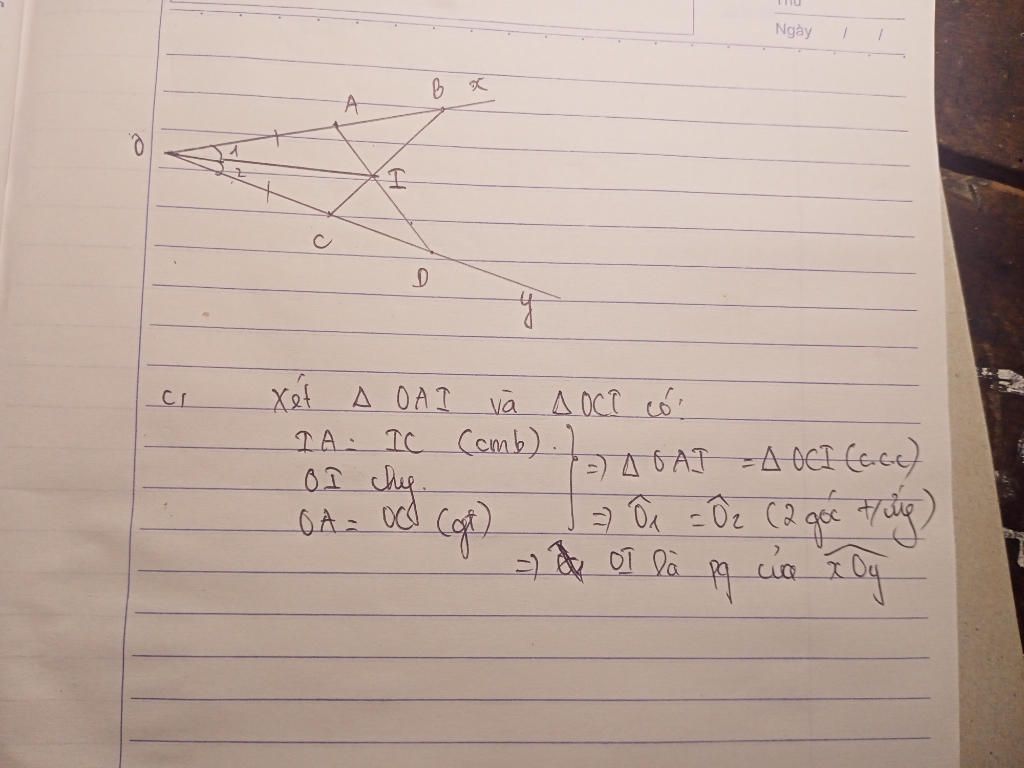 Thứ
Ngày / /
B x
A
O 1
2 I
C
D
y
c, Xét Δ OAI và Δ OCI có:
IA = IC (cmb)
OI chg.
OA = OC (gt)
=> Δ OAI = Δ OCI (c.c.c)
=> Ô1 = Ô2 (2 góc t/ứng)
=> OI là pg của xOy